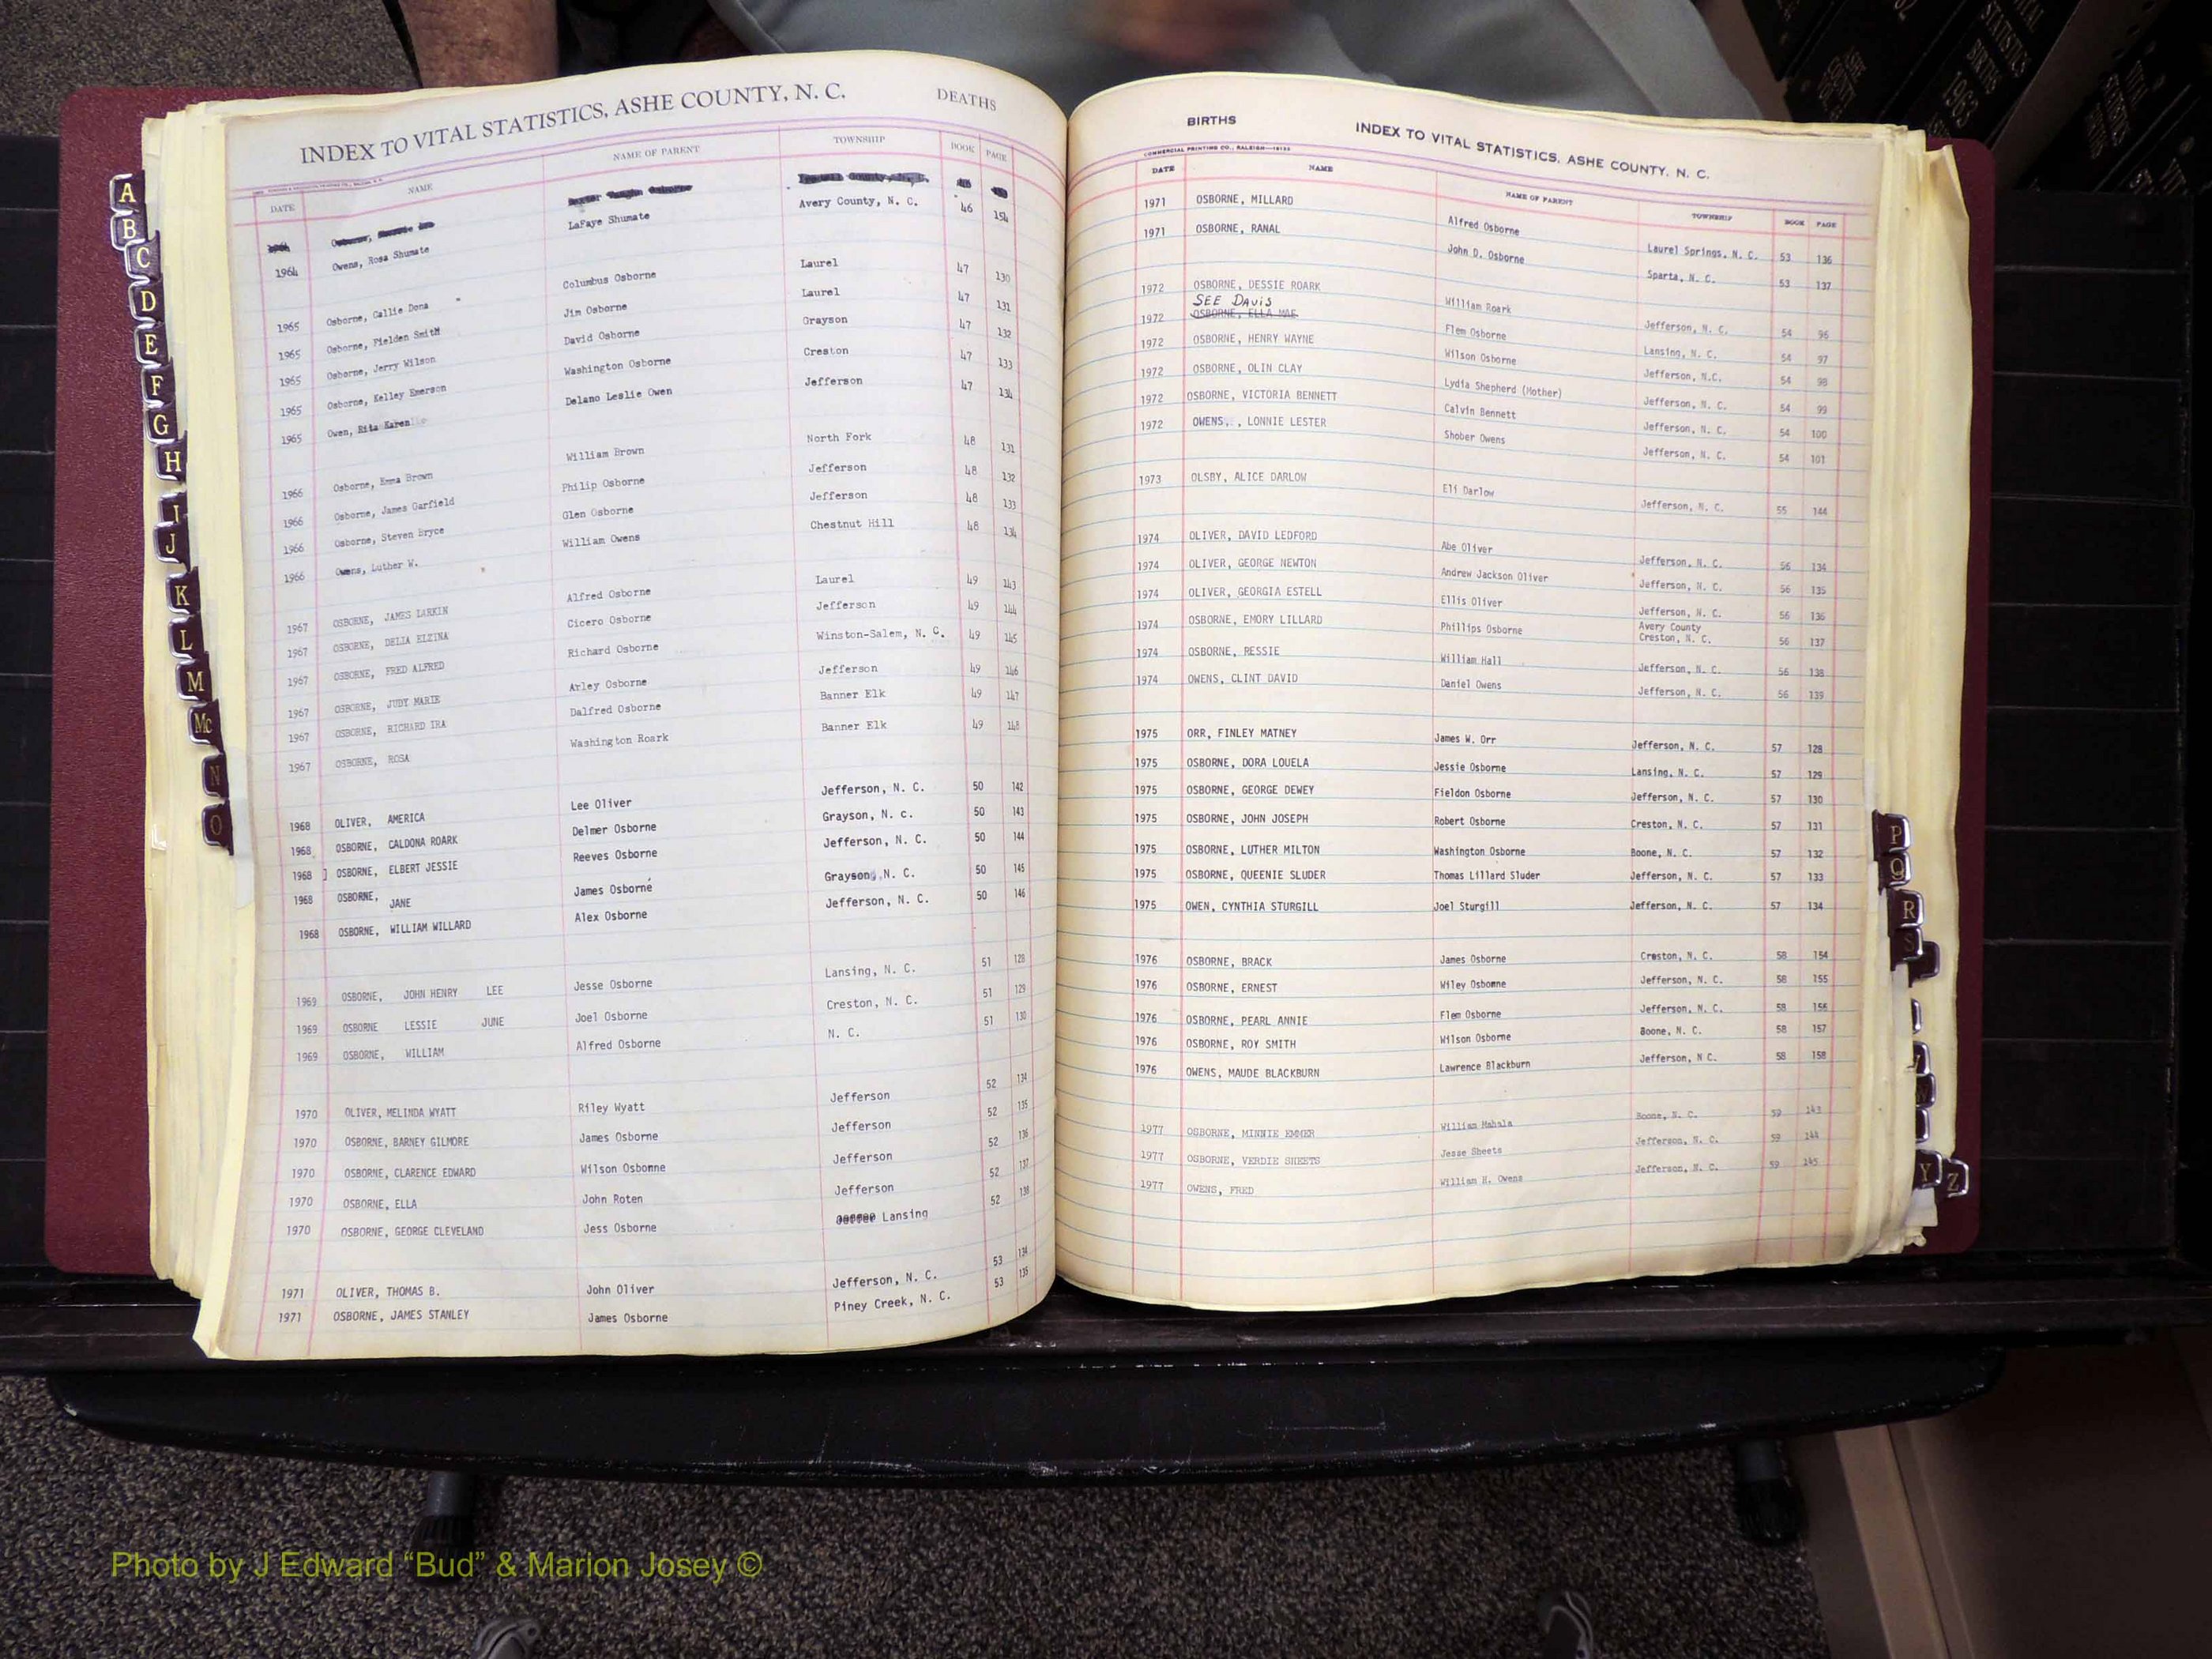 INDEX TO VITAL STATISTICS, ASHE COUNTY, N. C. DEATHS
DATE NAME NAME OF PARENT TOWNSHIP BOOK PAGE
1964 Owens, Rosa Shumate LaFaye Shumate Avery County, N. C. 46 154
1965 Osborne, Callie Dona Columbus Osborne Laurel 47 130
1965 Osborne, Fielden Smith Jim Osborne Laurel 47 131
1965 Osborne, Jerry Wilson David Osborne Grayson 47 132
1965 Osborne, Kelley Emerson Washington Osborne Creston 47 133
1965 Owen, Rita Karen Delano Leslie Owen Jefferson 47 134
1966 Osborne, Emma Brown William Brown North Fork 48 131
1966 Osborne, James Garfield Philip Osborne Jefferson 48 132
1966 Osborne, Steven Bryce Glen Osborne Jefferson 48 133
1966 Owens, Luther W. William Owens Chestnut Hill 48 134
1967 OSBORNE, JAMES LARKIN Alfred Osborne Laurel 49 143
1967 OSBORNE, DELIA ELZINA Cicero Osborne Jefferson 49 144
1967 OSBORNE, FRED ALFRED Richard Osborne Winston-Salem, N. C. 49 145
1967 OSBORNE, JUDY MARIE Arley Osborne Jefferson 49 146
1967 OSBORNE, RICHARD IRA Dalfred Osborne Banner Elk 49 147
1967 OSBORNE, ROSA Washington Roark Banner Elk 49 148
1968 OLIVER, AMERICA Lee Oliver Jefferson, N. C. 50 142
1968 OSBORNE, CALDONA ROARK Delmer Osborne Grayson, N. c. 50 143
1968 OSBORNE, ELBERT JESSIE Reeves Osborne Jefferson, N. C. 50 144
1968 OSBORNE, JANE James Osborne Grayson, N. C. 50 145
1968 OSBORNE, WILLIAM WILLARD Alex Osborne Jefferson, N. C. 50 146
1969 OSBORNE, JOHN HENRY LEE Jesse Osborne Lansing, N. C. 51 128
1969 OSBORNE LESSIE JUNE Joel Osborne Creston, N. C. 51 129
1969 OSBORNE, WILLIAM Alfred Osborne N. C. 51 130
1970 OLIVER, MELINDA WYATT Riley Wyatt Jefferson 52 134
1970 OSBORNE, BARNEY GILMORE James Osborne Jefferson 52 135
1970 OSBORNE, CLARENCE EDWARD Wilson Osbonne Jefferson 52 136
1970 OSBORNE, ELLA John Roten Jefferson 52 137
1970 OSBORNE, GEORGE CLEVELAND Jess Osborne Lansing 52 138
1971 OLIVER, THOMAS B. John Oliver Jefferson, N. C. 53 134
1971 OSBORNE, JAMES STANLEY James Osborne Piney Creek, N. C. 53 135
BIRTHS INDEX TO VITAL STATISTICS, ASHE COUNTY, N. C.
COMMERCIAL PRINTING CO., RALEIGH
DATE NAME NAME OF PARENT TOWNSHIP BOOK PAGE
1971 OSBORNE, MILLARD Alfred Osborne Laurel Springs, N. C. 53 136
1971 OSBORNE, RANAL John D. Osborne Sparta, N. C. 53 137
1972 OSBORNE, DESSIE ROARK William Roark Jefferson, N. C. 54 96
SEE DAVIS
1972 OSBORNE, ELLA MAE Flem Osborne Lansing, N. C. 54 97
1972 OSBORNE, HENRY WAYNE Wilson Osborne Jefferson, N.C. 54 98
1972 OSBORNE, OLIN CLAY Lydia Shepherd (Mother) Jefferson, N. C. 54 99
1972 OSBORNE, VICTORIA BENNETT Calvin Bennett Jefferson, N. C. 54 100
1972 OWENS, , LONNIE LESTER Shober Owens Jefferson, N. C. 54 101
1973 OLSBY, ALICE DARLOW Eli Darlow Jefferson, N. C. 55 144
1974 OLIVER, DAVID LEDFORD Abe Oliver Jefferson, N. C. 56 134
1974 OLIVER, GEORGE NEWTON Andrew Jackson Oliver Jefferson, N. C. 56 135
1974 OLIVER, GEORGIA ESTELL Ellis Oliver Jefferson, N. C. 56 136
1974 OSBORNE, EMORY LILLARD Phillips Osborne Avery County Creston, N. C. 56 137
1974 OSBORNE, RESSIE William Hall Jefferson, N. C. 56 138
1974 OWENS, CLINT DAVID Daniel Owens Jefferson, N. C. 56 139
1975 ORR, FINLEY MATNEY James W. Orr Jefferson, N. C. 57 128
1975 OSBORNE, DORA LOUELA Jessie Osborne Lansing, N. C. 57 129
1975 OSBORNE, GEORGE DEWEY Fieldon Osborne Jefferson, N. C. 57 130
1975 OSBORNE, JOHN JOSEPH Robert Osborne Creston, N. C. 57 131
1975 OSBORNE, LUTHER MILTON Washington Osborne Boone, N. C. 57 132
1975 OSBORNE, QUEENIE SLUDER Thomas Lillard Sluder Jefferson, N. C. 57 133
1975 OWEN, CYNTHIA STURGILL Joel Sturgill Jefferson, N. C. 57 134
1976 OSBORNE, BRACK James Osborne Creston, N. C. 58 154
1976 OSBORNE, ERNEST Wiley Osborne Jefferson, N. C. 58 155
1976 OSBORNE, PEARL ANNIE Flem Osborne Jefferson, N. C. 58 156
1976 OSBORNE, ROY SMITH Wilson Osborne Boone, N. C. 58 157
1976 OWENS, MAUDE BLACKBURN Lawrence Blackburn Jefferson, N C. 58 158
1977 OSBORNE, MINNIE EMMER William Mahala Boone, N. C. 59 143
1977 OSBORNE, VERDIE SHEETS Jesse Sheets Jefferson, N. C. 59 144
1977 OWENS, FRED William H. Owens Jefferson, N. C. 59 145
A
B
C
D
E
F
G
H
I
J
K
L
M
Mc
N
O
P
Q
R
S
Y
Z
ASHE COUNTY
VITAL STATISTICS BIRTHS 1963
Photo by J Edward “Bud” & Marion Josey ©